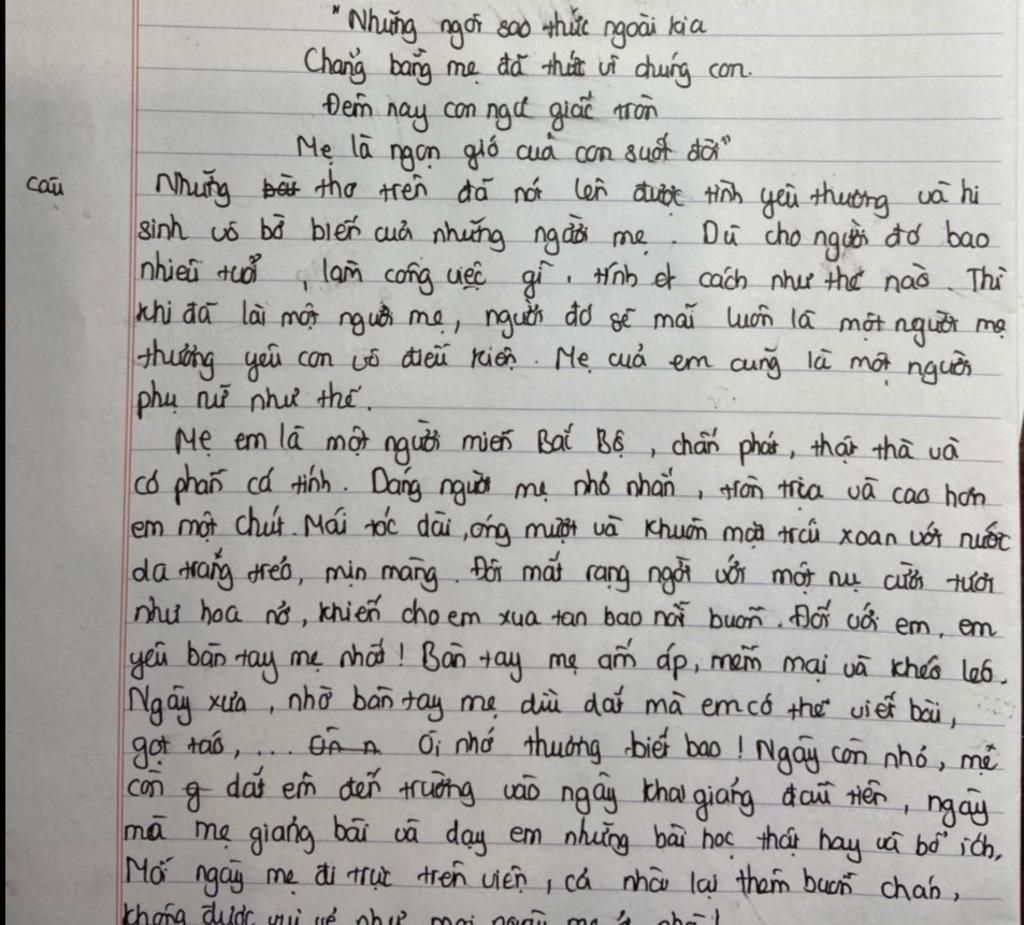 "Những ngôi sao thức ngoài kia
Chẳng bằng mẹ đã thức vì chúng con.
Đêm nay con ngủ giấc tròn
Mẹ là ngọn gió của con suốt đời"
câu
Những bài thơ trên đã nói lên được tình yêu thương và hi
sinh vô bờ bến của những người mẹ. Dù cho người đó bao
nhiêu tuổi, làm công việc gì, tính cách như thế nào. Thì
khi đã lài một người mẹ, người đó sẽ mãi luôn là một người mẹ
thương yêu con vô điều kiện. Mẹ của em cũng là một người
phụ nữ như thế.
Mẹ em là một người miền Bắc Bộ, chân phát, thật thà và
có phần cá tính. Dáng người mẹ nhỏ nhắn, tròn trịa và cao hơn
em một chút. Mái tóc dài, óng mượt và khuôn mặt trái xoan với nước
da trắng trẻo, mịn màng. Đôi mắt rạng ngời với một nụ cười tươi
như hoa nở, khiến cho em xua tan bao nỗi buồn. Đối với em, em
yêu bàn tay mẹ nhất! Bàn tay mẹ ấm áp, mềm mại và khéo léo.
Ngày xưa, nhờ bàn tay mẹ dìu dắt mà em có thể viết bài,
gọt táo, ... Ôi nhớ thương biết bao! Ngày còn nhỏ, mẹ
còn g dắt em đến trường vào ngày khai giảng đầu tiên, ngày
mà mẹ giảng bài và dạy em những bài học thật hay và bổ ích,
Mỗi ngày mẹ đi trực trên viện, cả nhà lại thêm buồn chán,
không được vui vẻ như mọi ngày mẹ ở nhà!